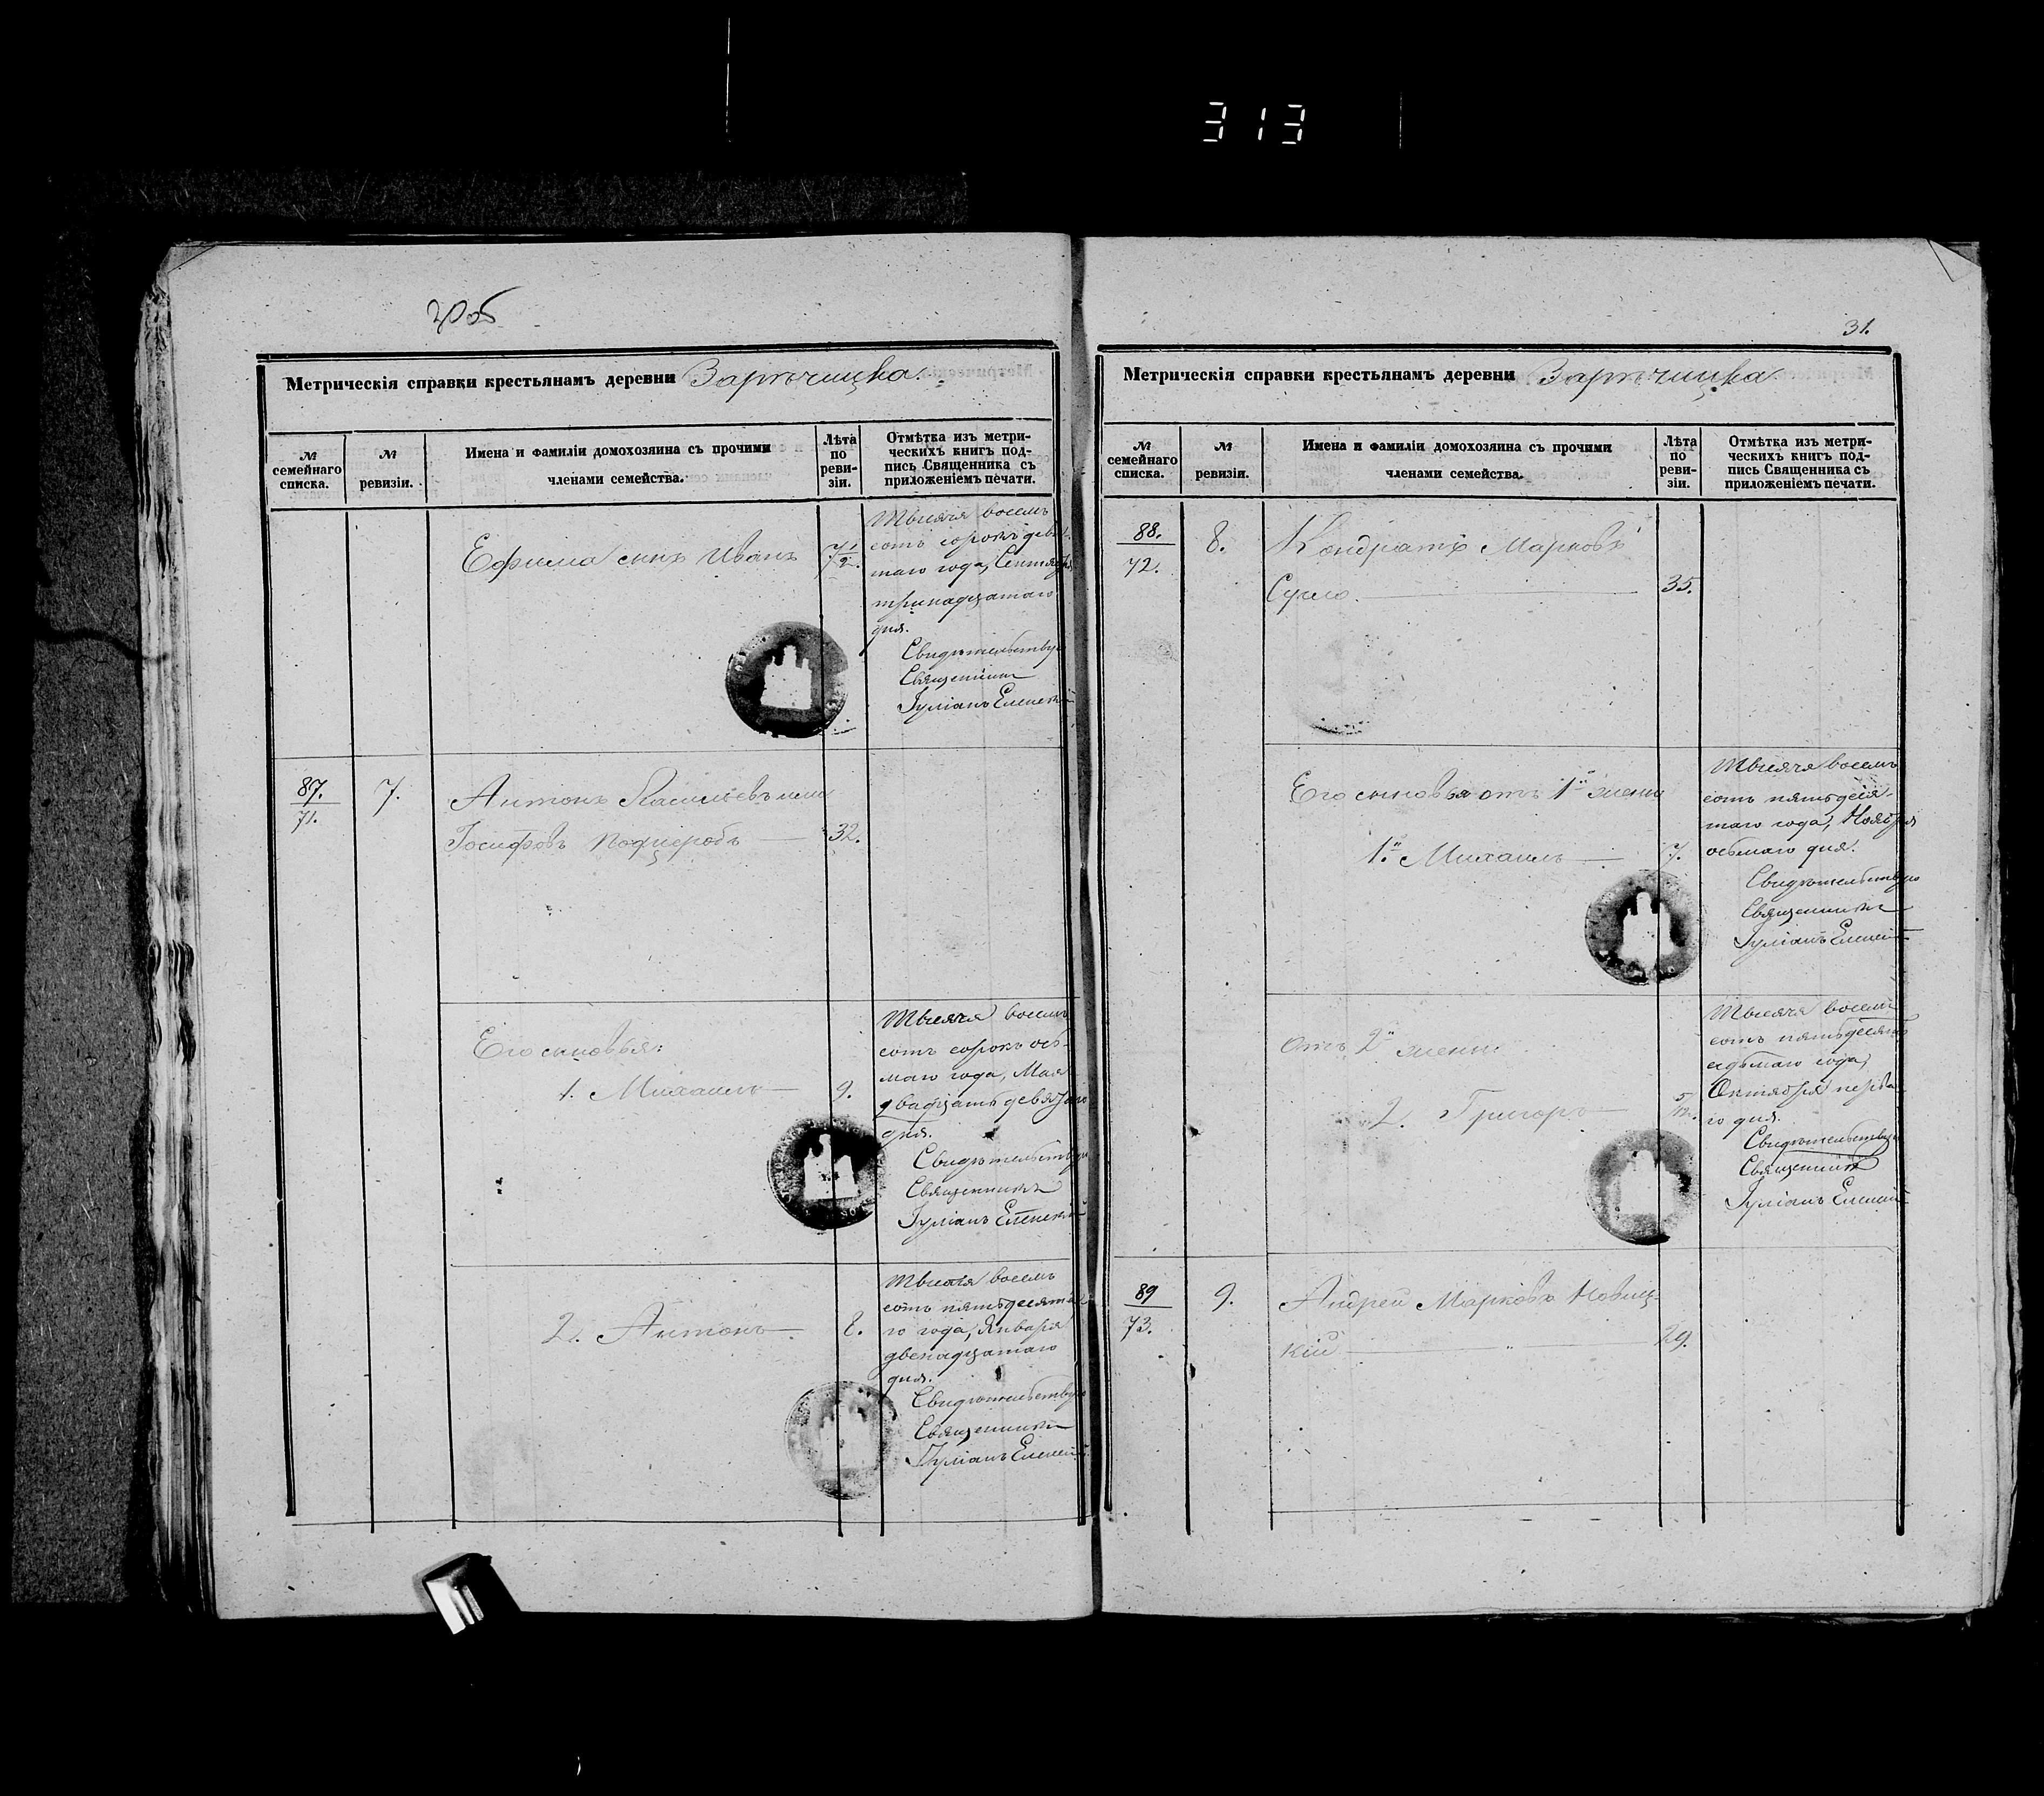 313
31.
Метрическія справки крестьянамъ деревни Зарѣчицка.
№ семейнаго списка.
№ ревизіи.
Имена и фамиліи домохозяина съ прочими членами семейства.
Лѣта по реви-зіи.
Отмѣтка изъ метри-
ческихъ книгъ под-
пись Священника съ
приложеніемъ печати.
Ефима сынъ Иванъ
Тысяча восемь
сотъ сорокъ девя-
таго года, Сентября
тринадцатаго
дня.
Свидѣтельствую
Священникъ
Іуліанъ
87.
71.
7.
Антонъ
Іосифовъ
32.
Его сыновья:
1. Михаилъ
9.
Тысяча восемь
сотъ сорокъ ось-
маго года, Мая
двадцать девятаго
дня.
Свидѣтельствую
Священникъ
Іуліанъ
2. Антонъ
8.
Тысяча восемь
сотъ пятьдесята-
го года, Января
двенадцатаго
дня.
Свидѣтельствую
Священникъ
Іуліанъ
Метрическія справки крестьянамъ деревни Зарѣчицка.
№ семейнаго списка.
№ ревизіи.
Имена и фамиліи домохозяина съ прочими членами семейства.
Лѣта по реви-зіи.
Отмѣтка изъ метри-
ческихъ книгъ под-
пись Священника съ
приложеніемъ печати.
88.
72.
8.
Кондратъ Марковъ
35.
Его сыновья отъ 1й жены
1й Михаилъ
7.
Тысяча восемь
сотъ пятьдеся-
таго года, Ноября
осьмаго дня.
Свидѣтельствую
Священникъ
Іуліанъ
Отъ 2й жены
2. Григоръ
5/12.
Тысяча восемь
сотъ пятьдесятъ
седьмаго года,
Октября перва-
го дня.
Свидѣтельствую
Священникъ
Іуліанъ
89
73.
9.
Андрей Марковъ Новиц-
кій
29.